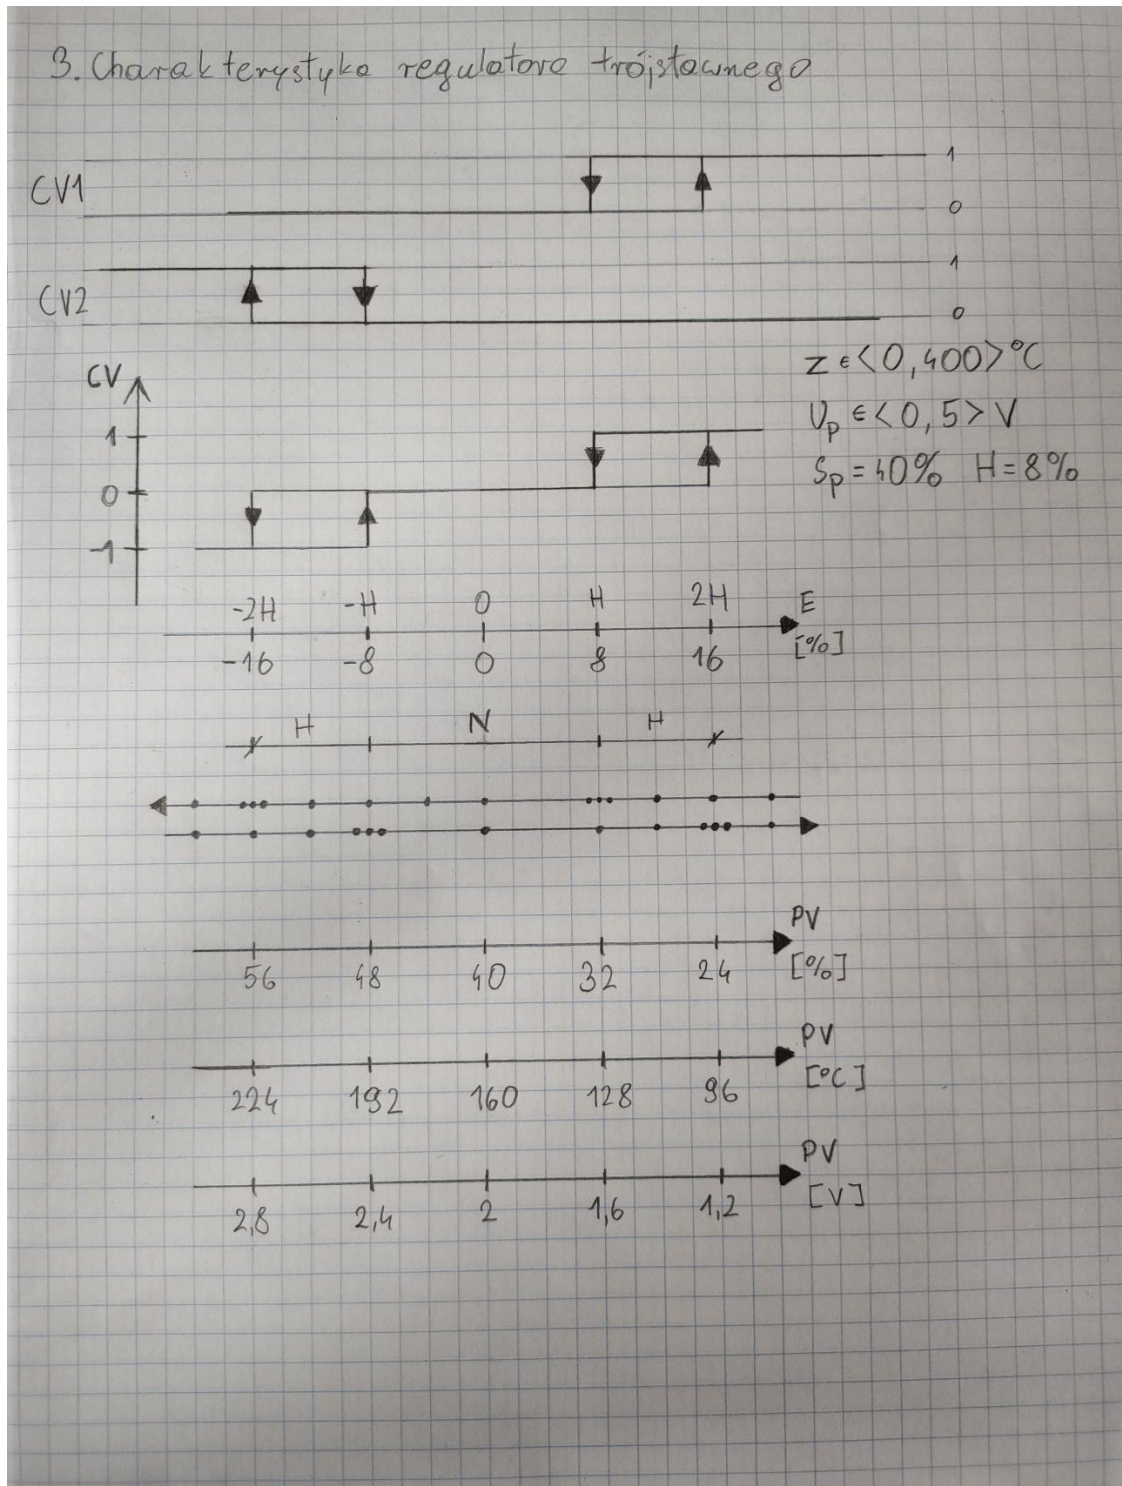 3. Charakterystyka regulatora trójstawnego
CV1
1
0
CV2
1
0
CV
1
0
-1
Z ϵ <0,400> °C
Up ϵ <0,5> V
Sp = 40% H = 8%
-2H -H 0 H 2H E
-16 -8 0 8 16 [%]
H N H
PV
56 48 40 32 24 [%]
PV
224 192 160 128 96 [°C]
PV
2,8 2,4 2 1,6 1,2 [V]